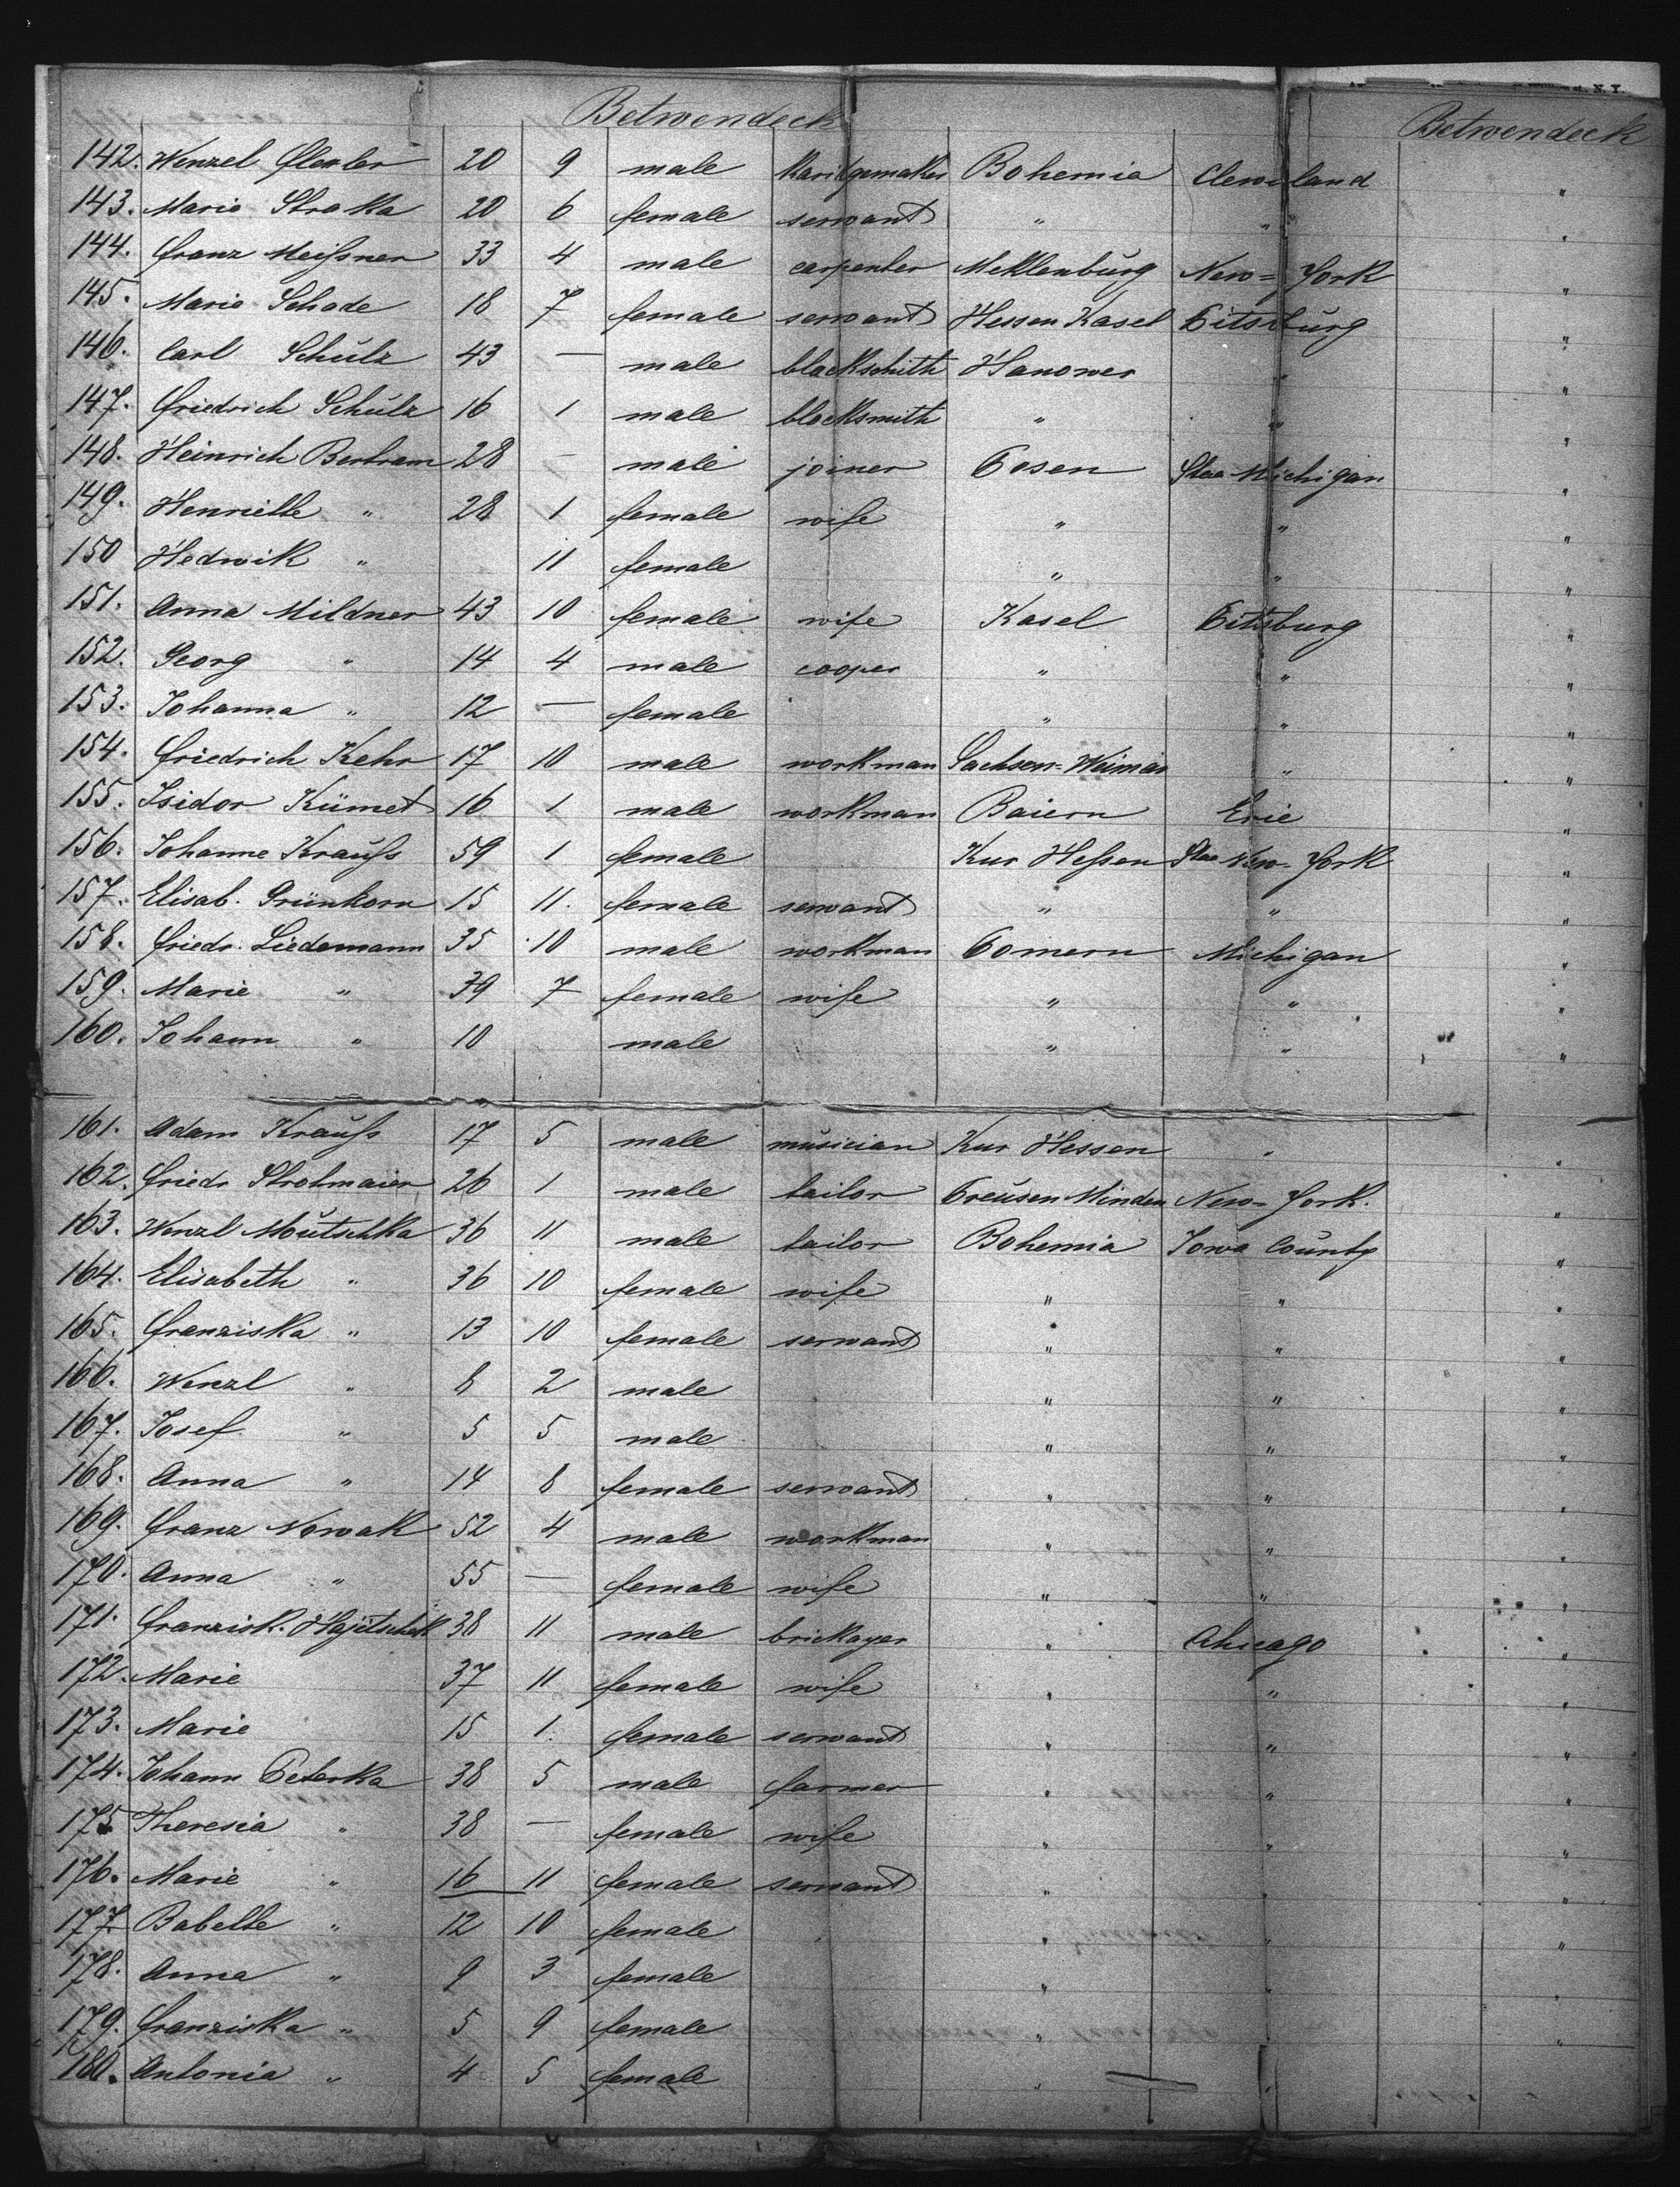 Betwendeck Betwendeck
142. Wenzel 20 9 male Bohemia Cleweland "
143. Marie Straka 20 6 female servant " " "
144. Franz Meißner 33 4 male carpenter Meklenburg New=York "
145. Marie Schade 18 7 female servant Hessen Kasel Pitsburg "
146. Carl Schulz 43 — male blackschith Hanower " "
147. Friedrich Schulz 16 1 male blacksmith " " "
148. Heinrich Bertram 28 — male joiner Posen Staa Michigan "
149. Henriette " 28 1 female wife " " "
150 Hedwik " 11 female " " "
151. Anna Mildner 43 10 female wife Kasel Pittsburg "
152. Georg " 14 4 male cooper " " "
153. Johanna " 12 — female " " "
154. Friedrich Kehr 17 10 male workman Sachsen=Weimar " "
155. Isidor Kümet 16 1 male workman Baiern Erie "
156. Johanne Krauß 59 1 female Kur Heßen Staa New=York "
157. Elisab. Grünkorn 15 11. female servant " " "
158. Friedr. Liedemann 35 10 male workman Pomern Michigan "
159. Marie " 39 7 female wife " " "
160. Johann " 10 male " " "
161. Adam Krauß 17 5 male musician Kur Hessen " "
162. Friedr Strotmaier 26 1 male tailor Preusen Minden New=York. "
163. Wenzl Moutschka 36 11 male tailor Bohemia Iowa County "
164. Elisabeth " 36 10 female wife " " "
165. Franziska " 13 10 female servant " " "
166. Wenzl " 8 2 male " " "
167. Josef " 5 5 male " " "
168. Anna " 14 8 female servant " " "
169. Franz Nowak 52 4 male workman " " "
170. Anna " 55 — female wife " " "
171. Franzisk. Hajetschek 38 11 male brickayer " Chicago "
172. Marie 37 11 female wife " " "
173. Marie 15 1. female servant " " "
174. Johann Peterka 38 5 male farmer " " "
175 Theresia " 38 — female wife " " "
176. Marie " 16 11 female servant " " "
177 Babette " 12 10 female " " "
178. Anna " 9 3 female " " "
179. Franziska " 5 9 female " " "
180. Antonia " 4 5 female " "